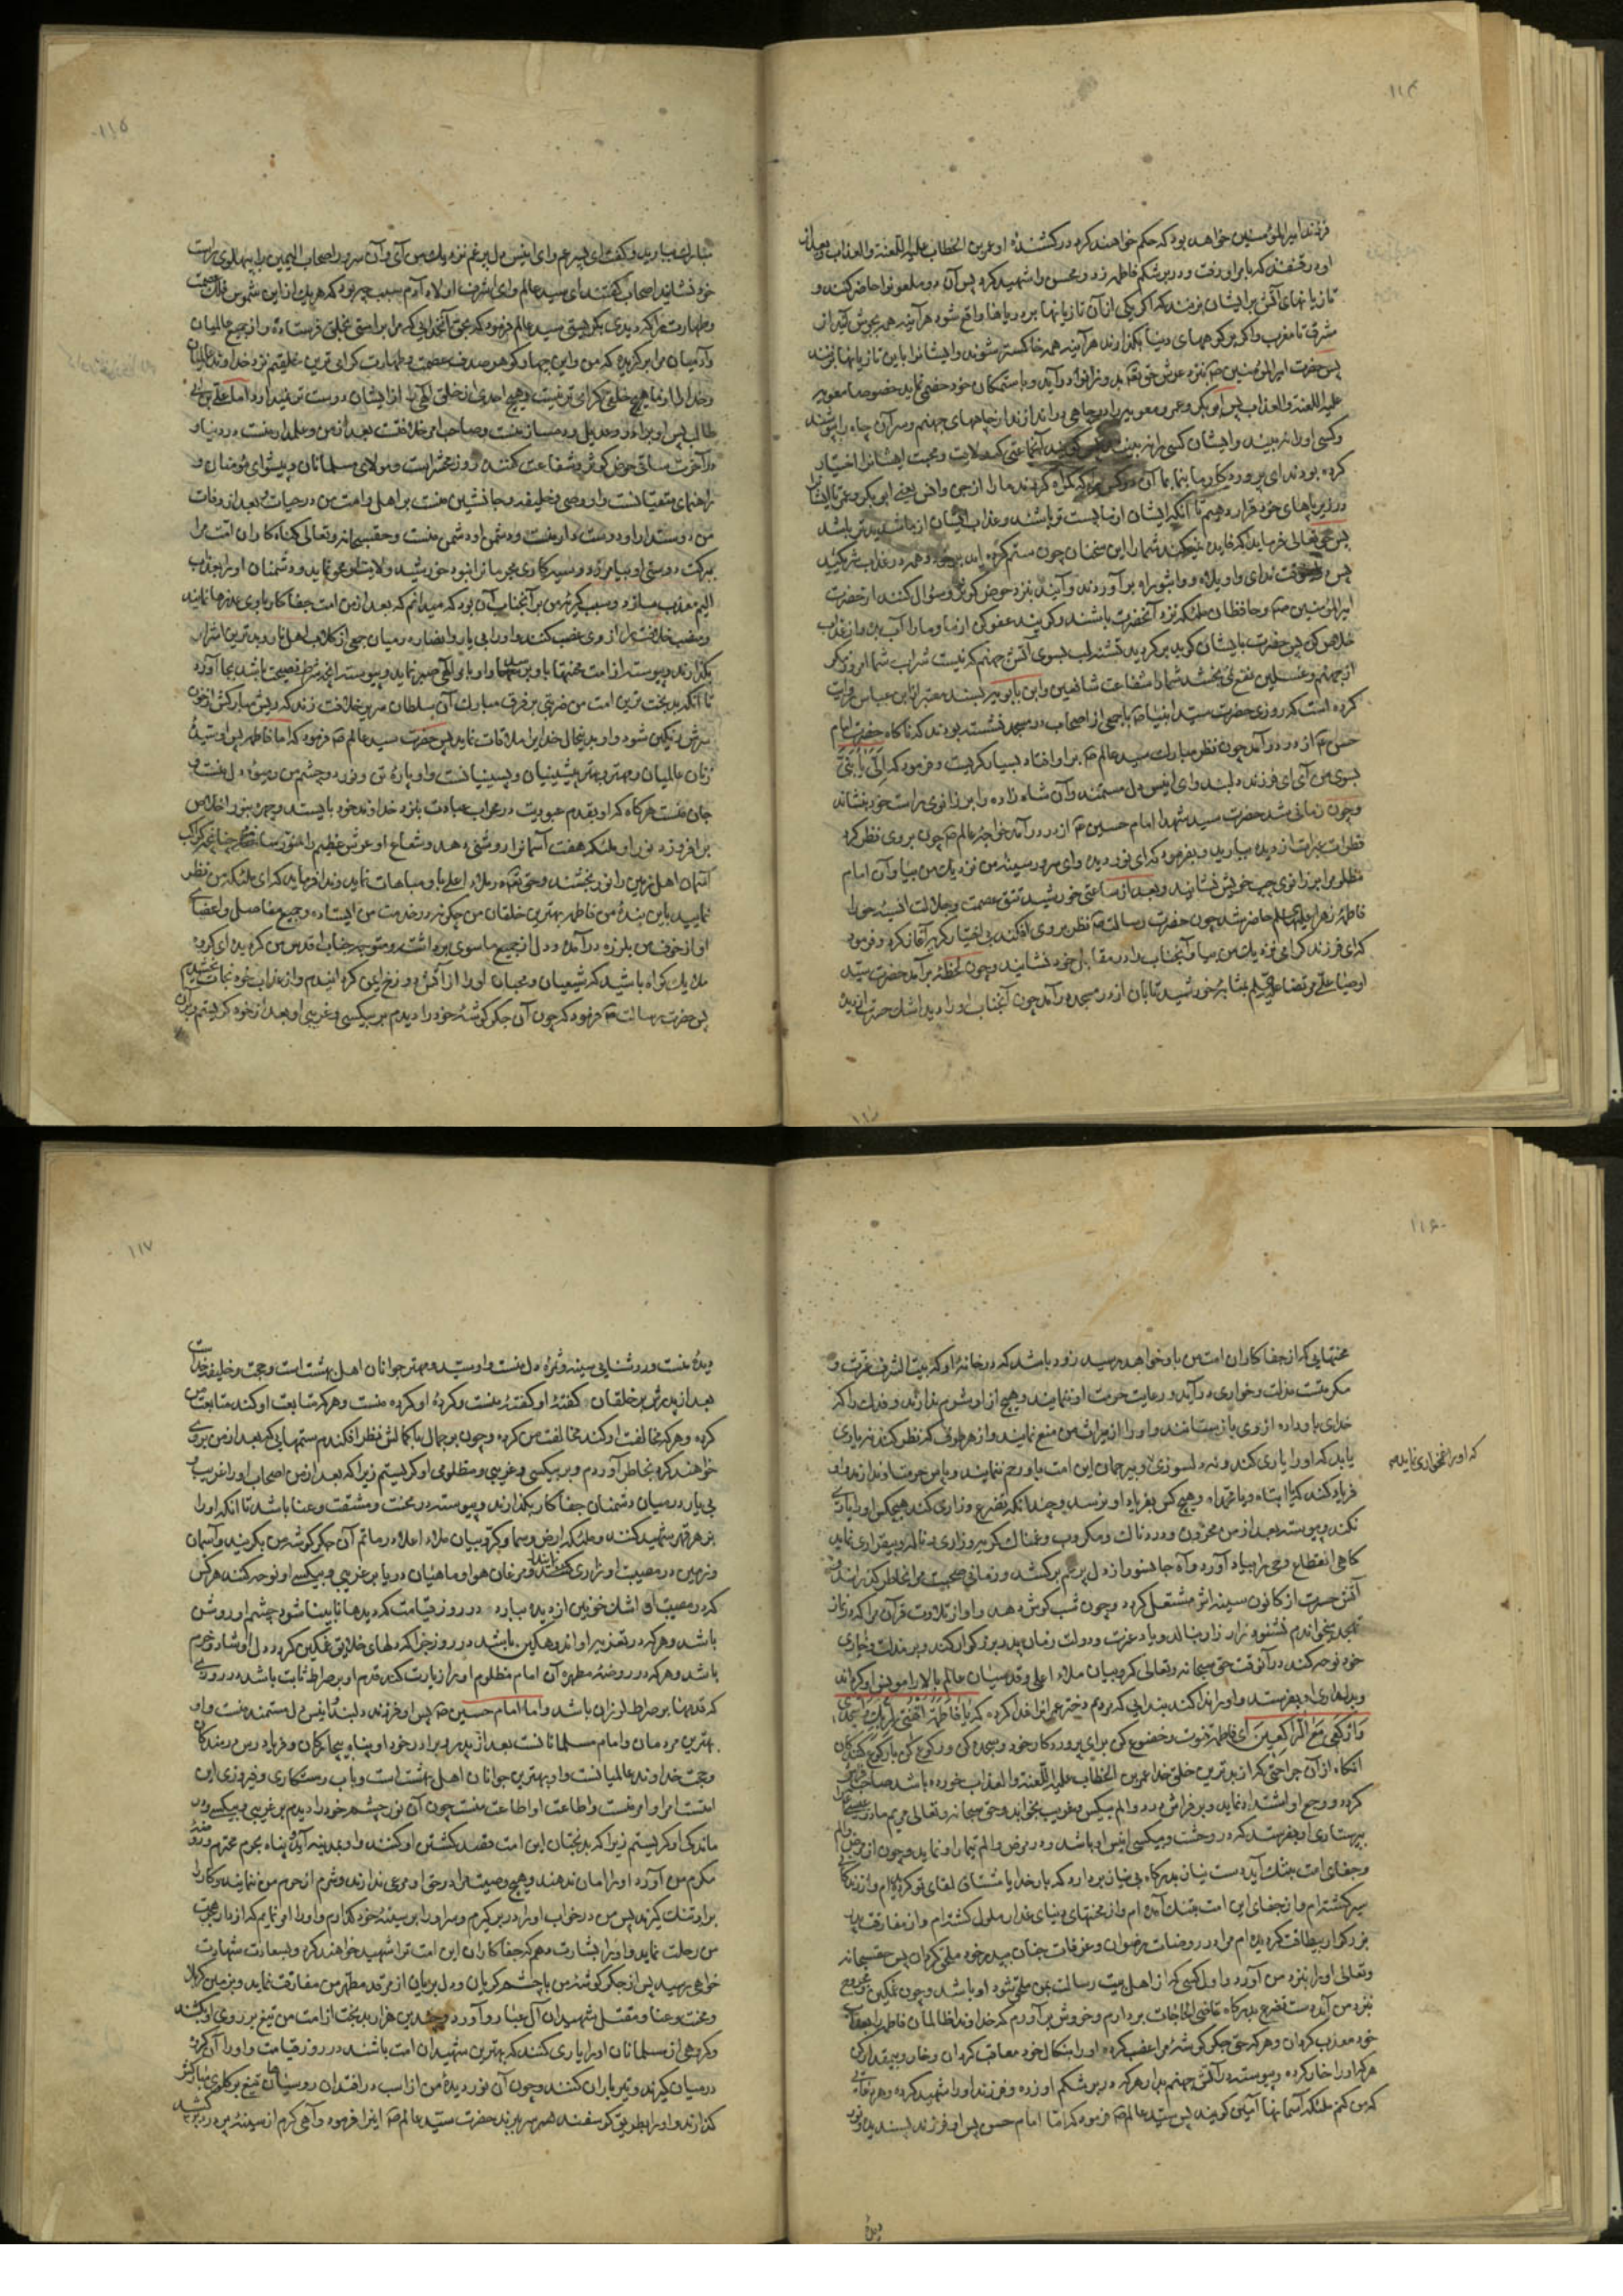 ۱۱۴
فرزند امیرالمؤمنین خواهد بود که حکم خواهند کرد در کشندهٔ او عمر بن الخطاب علیه اللعنة والعذاب و بعد از
او در قنفذ که با مر او رفت و در بر شکم فاطمه زد و محسن را شهید کرد پس آن دو ملعون را حاضر کنند و
تازیانهای آتش بر ایشان بزنند که اگر یکی از آن تازیانها بر دریاها واقع شود هر آینه همه بجوش آید از
مشرق تا مغرب و اگر بر کوههای دنیا بگذارند هر آینه همه خاکستر شوند و ایشانرا باین تازیانها بزنند
پس حضرت امیرالمؤمنین ص بنزد عرش حق تعالی بدو زانو در آید و با ستمکاران خود خصمی نماید خصوصا معویه
علیه اللعنة والعذاب پس ابو بکر و عمر و معویه را در چاهی در اندازند از چاههای جهنم و سر آن چاه را بپوشند
و کسی او را نه بیند و ایشان کسی را نه بینند پس گویند آنجماعتی که ولایت و محبت ایشانرا اختیار
کرده بودند ای پروردگار ما بنما بما آن دو کس را که گمراه کردند ما را از جن و انس یعنی ابی بکر و عمر تا ایشانرا
در زیر پاهای خود قرار دهیم تا آنکه ایشان از ما پست تر باشند و عذاب ایشان از ما شدیدتر باشد
پس حق تعالی فرماید که فایده نمیکند شما را این سخنان چون ستم کرده اید بر خود و همه در عذاب شریکید
پس در آنوقت ندای واویلاه و واثبوراه بر آوردند و آیند بنزد حوض کوثر و سؤال کنند از حضرت
امیرالمؤمنین ص و حافظان ملئکه نزد آنحضرت باشند و گویند عفو کن از ما و ما را آب بده و از عذاب
خلاص کن پس حضرت بایشان گوید بر گردید تشنه لب بسوی آتش جهنم که نیست شراب شما امروز مگر
از جهنم و غسلین نفع نمی بخشد شما را شفاعت شافعین و ابن بابویه بسند معتبر از ابن عباس روایت
کرده است که روزی حضرت سید انبیا ص با جمعی از اصحاب در مسجد نشسته بودند که ناگاه حضرت امام
حسن ع از در در آمد چون نظر مبارک سید عالم ص بر او افتاد بسیار گریست و فرمود که الیّ یا بنیّ
بسوی من آی ای فرزند دلبند و ای انیس دل مستمند و آن شاه زاده را بر زانوی راست خود بنشاند
و چون زمانی شد حضرت سید شهدا امام حسین ع از در در آمد خواجه عالم ص چون بر وی نظر کرد
قطرات عبرت از دیده ببارید و بفرمود که ای نور دیده و ای سرور سینه من نزدیک من بیا و آن امام
مظلوم را بر زانوی چپ خویش نشانید و بعد از ساعتی خورشید تتق عصمت و جلالت انسیه حورا
فاطمه زهرا علیها السلام حاضر شد چون حضرت رسالت ص نظر بر وی افکند بی اختیار گریه آغاز کرد و فرمود
که ای فرزند گرامی نزدیک من بیا و آنجناب را در مقابل خود نشانید و چون لحظه بر آمد حضرت سید
اوصیا علی مرتضی علیه السلام بمثابهٔ خورشید تابان از در مسجد در آمد چون آنجناب او را دید اشک حسرت از دیده
۱۱۵
مبارک ببارید و گفت ای پسر عم و ای انیس دل پر غم نزدیک من آی و آن سرور اصحاب الیمین را به پهلوی راست
خود نشانید اصحاب گفتند ای سید عالم و ای اشرف اولاد آدم سبب چه بود که هر یک از این شموس فلک عصمت
و طهارت را که دیدی بگریستی سید عالم فرمود که بحق آنخدایی که مرا براستی بخلق فرستاده و از جمیع عالمیان
و آدمیان مرا بر گزیده که من و این چهار گوهر صدف عصمت و طهارت گرامی ترین خلقیم نزد خداوند عالمیان
و خدا را از ما هیچ خلقی گرامی تر نیست و هیچ احدی از خلق الهی را از ایشان دوست تر نمیدارد اما علی بن ابی
طالب پس او برادر و عدیل و دمساز منست و صاحب امر خلافت بعد از من و علمدار منست در دنیا و
در آخرت ساقی حوض کوثر و شفاعت کننده روز محشر است و مولای مسلمانان و پیشوای مؤمنان و
راهنمای متقیانست و او وصی و خلیفه و جانشین منست بر اهل و امت من در حیات و بعد از وفات
من دوستدار او دوستدار منست و دشمن او دشمن منست و حقسبحانه و تعالی گناه کاران امت مرا
ببرکت دوستی او بیامرزد و سیه کاری مجرمانرا بنور خورشید ولایت او محو نماید و دشمنان او را بعذاب
الیم معذب سازد و سبب گریهٔ من بر آنجناب آن بود که میدانم که بعد از من امت جفاکار با وی غدرها نمایند
و منصب خلافت را از وی غصب کنند و او را بی یار و انصار در میان جمعی از کلاب اهل نار و بدترین اشرار
بگذارند و پیوسته از امت محنتها باو برسد و او با بلا الهی صبر نماید و پیوسته آنچه شرط نصیحت باشد بجا آورد
تا آنکه بدبخت ترین امت من ضربتی بر فرق مبارک آن سلطان سریر خلافت زند که ریش مبارکش از خون
سرش رنگین شود و او بدینحال خدا را ملاقات نماید پس حضرت سید عالم ص فرمود که اما فاطمه پس او سیدهٔ
زنان عالمیان و بهتر و مهتر پیشینیان و پسینیانست و او پارهٔ تن و نور دو چشم من و میوهٔ دل منست و
جان منست هر گاه که او بقدم عبودیت در محراب عبادت بنزد خداوند خود بایستد و چهره بنور اخلاص
بر افروزد نور او ملئکه هفت آسمانرا روشنی دهد و شعاع او عرش عظیم را منور سازد چنانچه کواکب
آسمان اهل زمین را نور بخشند و حق تعالی در ملاء اعلی باو مباهات نماید و ندا فرماید که ای ملئکه من نظر
نمایید باین بندهٔ من فاطمه بهترین خلقان من چگونه در خدمت من ایستاده و جمیع مفاصل و اعضای
او از خوف من بلرزه در آمده و دل از جمیع ما سوی برداشته و متوجه جناب اقدس من گردیده ای گروه
ملائک گواه باشید که شیعیان و محبان او را از آتش دوزخ ایمن گردانیدم و از عذاب خود نجات بخشیدم
پس حضرت رسالت ص فرمود که چون آن جگر گوشهٔ خود را دیدم بر بیکسی و غریبی او بعد از خود گریستم و بر آن
۱۱۶
محنتهایی که از جفاکاران امت من باو خواهد رسید زود باشد که در خانهٔ او که بیت الشرف عزت و
مکرمتست مذلت و خواری در آید و رعایت حرمت او ننمایند و هیچ از او شرم ندارند و فدک را که
خدای باو داده از وی باز ستانند و او را از میراث من منع نمایند و از هر طرفی که نظر کند نه یاری
یابد که او را یاری کند و نه دلسوزی و بیرحمان این امت باو رحم ننمایند و پاس حرمت او ندارند و او
که او را غمخواری نماید
فریاد کند که یا ابتاه و یا محمداه و هیچ کس بفریاد او نرسد و چندانکه تضرع و زاری کند هیچکس او را یاری
نکند و پیوسته بعد از من محزون و دردناک و مکروب و غمناک گریه و زاری و ناله و بیقراری نماید
گاهی انقطاع وحی را بیاد آورد و آه جانسوز از دل پر غم بر کشد و زمانی صحبت مرا بخاطر گذراند و
آتش حسرت از کانون سینه اش مشتعل گردد و چون شب گوش دهد و آواز تلاوت قرآن مرا که در نماز
تهجد میخواندم نشنود زار زار بنالد و یاد عزت و دولت زمان پدر بزرگوار کند و بر مذلت و خواری
خود نوحه کند در آنوقت حق سبحانه و تعالی کروبیان ملاء اعلی و قدسیان عالم بالا را مونس او گرداند
و بدلداری او بفرستد و او را ندا کنند بندایی که مریم دختر عمرانرا ندا کردند که یا فاطمة اقنتی لربک و اسجدی
و ارکعی مع الراکعین ای فاطمه قنوت و خضوع کن برای پروردگار خود و سجده کن و رکوع کن با رکوع کنندگان
آنگاه از آن جراحتی که از بدترین خلق خدا عمر بن الخطاب علیه اللعنة والعذاب خورده باشد صاحب فراش
گردد و وجع او اشتداد نماید و بر فراش درد و الم بیکس و غریب بخوابد و حق سبحانه و تعالی مریم مادر عیسی را
به پرستاری او بفرستد که در وحشت و بیکسی انیس او باشد و در مرض و الم تیمار او نماید و چون از مرض و الم
و جفای امت بتنگ آید دست نیاز بدرگاه بی نیاز بر دارد که بار خدایا مشتاق لقای تو گردیده ام و از زندگانی
سیر گشته ام و از جفای این امت بتنگ آمده ام و از محنتهای دنیای غدار ملول گشته ام و از مفارقت پدر
بزرگوار بیطاقت گردیده ام مرا در روضات رضوان و غرفات جنان بپدر خود ملحق گردان پس حقسبحانه
و تعالی او را بنزد من آورد و اول کسی که از اهل بیت رسالت بمن ملحق شود او باشد و چون غمگین و مجروح
بنزد من آید دست تضرع بدرگاه قاضی الحاجات بر دارم و خروش بر آورم که خداوندا ظالمان فاطمه را بعذاب
خود معذب گردان و هر که حق جگر گوشهٔ مرا غصب کرده او را بنکال خود معاقب گردان و خار و بیمقدار کن
هر که او را خار کرده و پیوسته در آتش جهنم بدار هر که در بر شکم او زده و فرزند او را شهید کرده و هر دعایی
که من کنم ملئکه آسمانها آمین گویند پس سید عالم ص فرمود که اما امام حسن پس او فرزند پسندیده و نور
دیدهٔ
۱۱۷
دیدهٔ منست و روشنایی سینه و ثمرهٔ دل منست و او سید و مهتر جوانان اهل بهشت است و حجت و خلیفه خداست
بعد از پدرش بر خلقان گفتهٔ او گفتهٔ منست و کردهٔ او کرده منست و هر که متابعت او کند متابعت من
کرده و هر که مخالفت او کند مخالفت من کرده و چون بر جمال با کمالش نظر افکندم ستمهایی که بعد از من بر وی
خواهند کرد بخاطر آوردم و بر بیکسی و غریبی و مظلومی او گریستم زیرا که بعد از من اصحاب او را غریب و
بی یار در میان دشمنان جفاکار بگذارند و پیوسته در محنت و مشقت و عنا باشد تا آنکه او را
بزهر قهر شهید کنند و ملئکه ارض و سما و کروبیان ملاء اعلا در ماتم آن جگر گوشه من بگریند و آسمان
و زمین در مصیبت او زاری کنند و مرغان هوا و ماهیان دریا بر غریبی و بیکسی او نوحه کنند هر کس
که در مصیبت او اشک خونین از دیده ببارد در روز قیامت که دیدها نابینا شود چشم او روشن
باشد و هر که در تعزیهٔ او اندوهگین باشد در روز جزا که دلهای خلایق غمگین گردد دل او شاد و خرم
باشد و هر که در روضهٔ مطهره آن امام مظلوم او را زیارت کند قدم او بر صراط ثابت باشد در روزی
که قدمها بر صراط لرزان باشد و اما امام حسین ص پس او فرزند دلبند و انیس دل مستمند منست و او
بهترین مردمان و امام مسلمانانست بعد از پدر و برادر خود او پناه بیچارگان و فریاد رس درمندگان
و حجت خداوند عالمیانست و او بهترین جوانان اهل بهشت است و باب رستگاری و فیروزی این
امتست امر او امر منست و اطاعت او اطاعت منست چون آن نور چشم خود را دیدم بر غریبی و بیکسی و در
ماندگی او گریستم زیرا که بدبختان این امت قصد کشتن او کنند و او بمدینه آید و پناه بحرم محترم و روضهٔ
مکرم من آورد او را امان ندهند و هیچ وصیت مرا در حق او مرعی ندارند و شرم از حرم من ننمایند و کار را
بر او تنگ گیرند پس من در خواب او را در بر گیرم و سر او را بر سینهٔ خود گذارم و او را امر نمایم که از دار هجرت
من رحلت نماید و او را بشارت دهم که جفاکاران این امت ترا شهید خواهند کرد و بسعادت شهادت
خواهی رسید پس از جگر گوشهٔ من با چشم گریان و دل بریان از مرقد مطهر من مفارقت نماید و بزمین کربلا
و محنت و عنا و مقتل شهیدان آل عبا رو آورد و چندین هزار بدبخت از امت من تیغ بر روی او کشند
و گروهی از مسلمانان او را یاری کنند که بهترین شهیدان امت باشند در روز قیامت و او را آن گروه
در میان گیرند و تیر باران کنند و چون آن نور دیدهٔ من از اسب در افتد آن روسیاهان تیغ بر گلوی مبارکش
گذارند و او را بطریق گوسفند سر ببرند حضرت سید عالم ص اینرا فرمود و آهی گرم از سینهٔ پر درد بر کشید